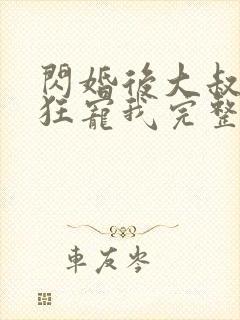 閃婚後大叔
狂寵我完整
車友岑